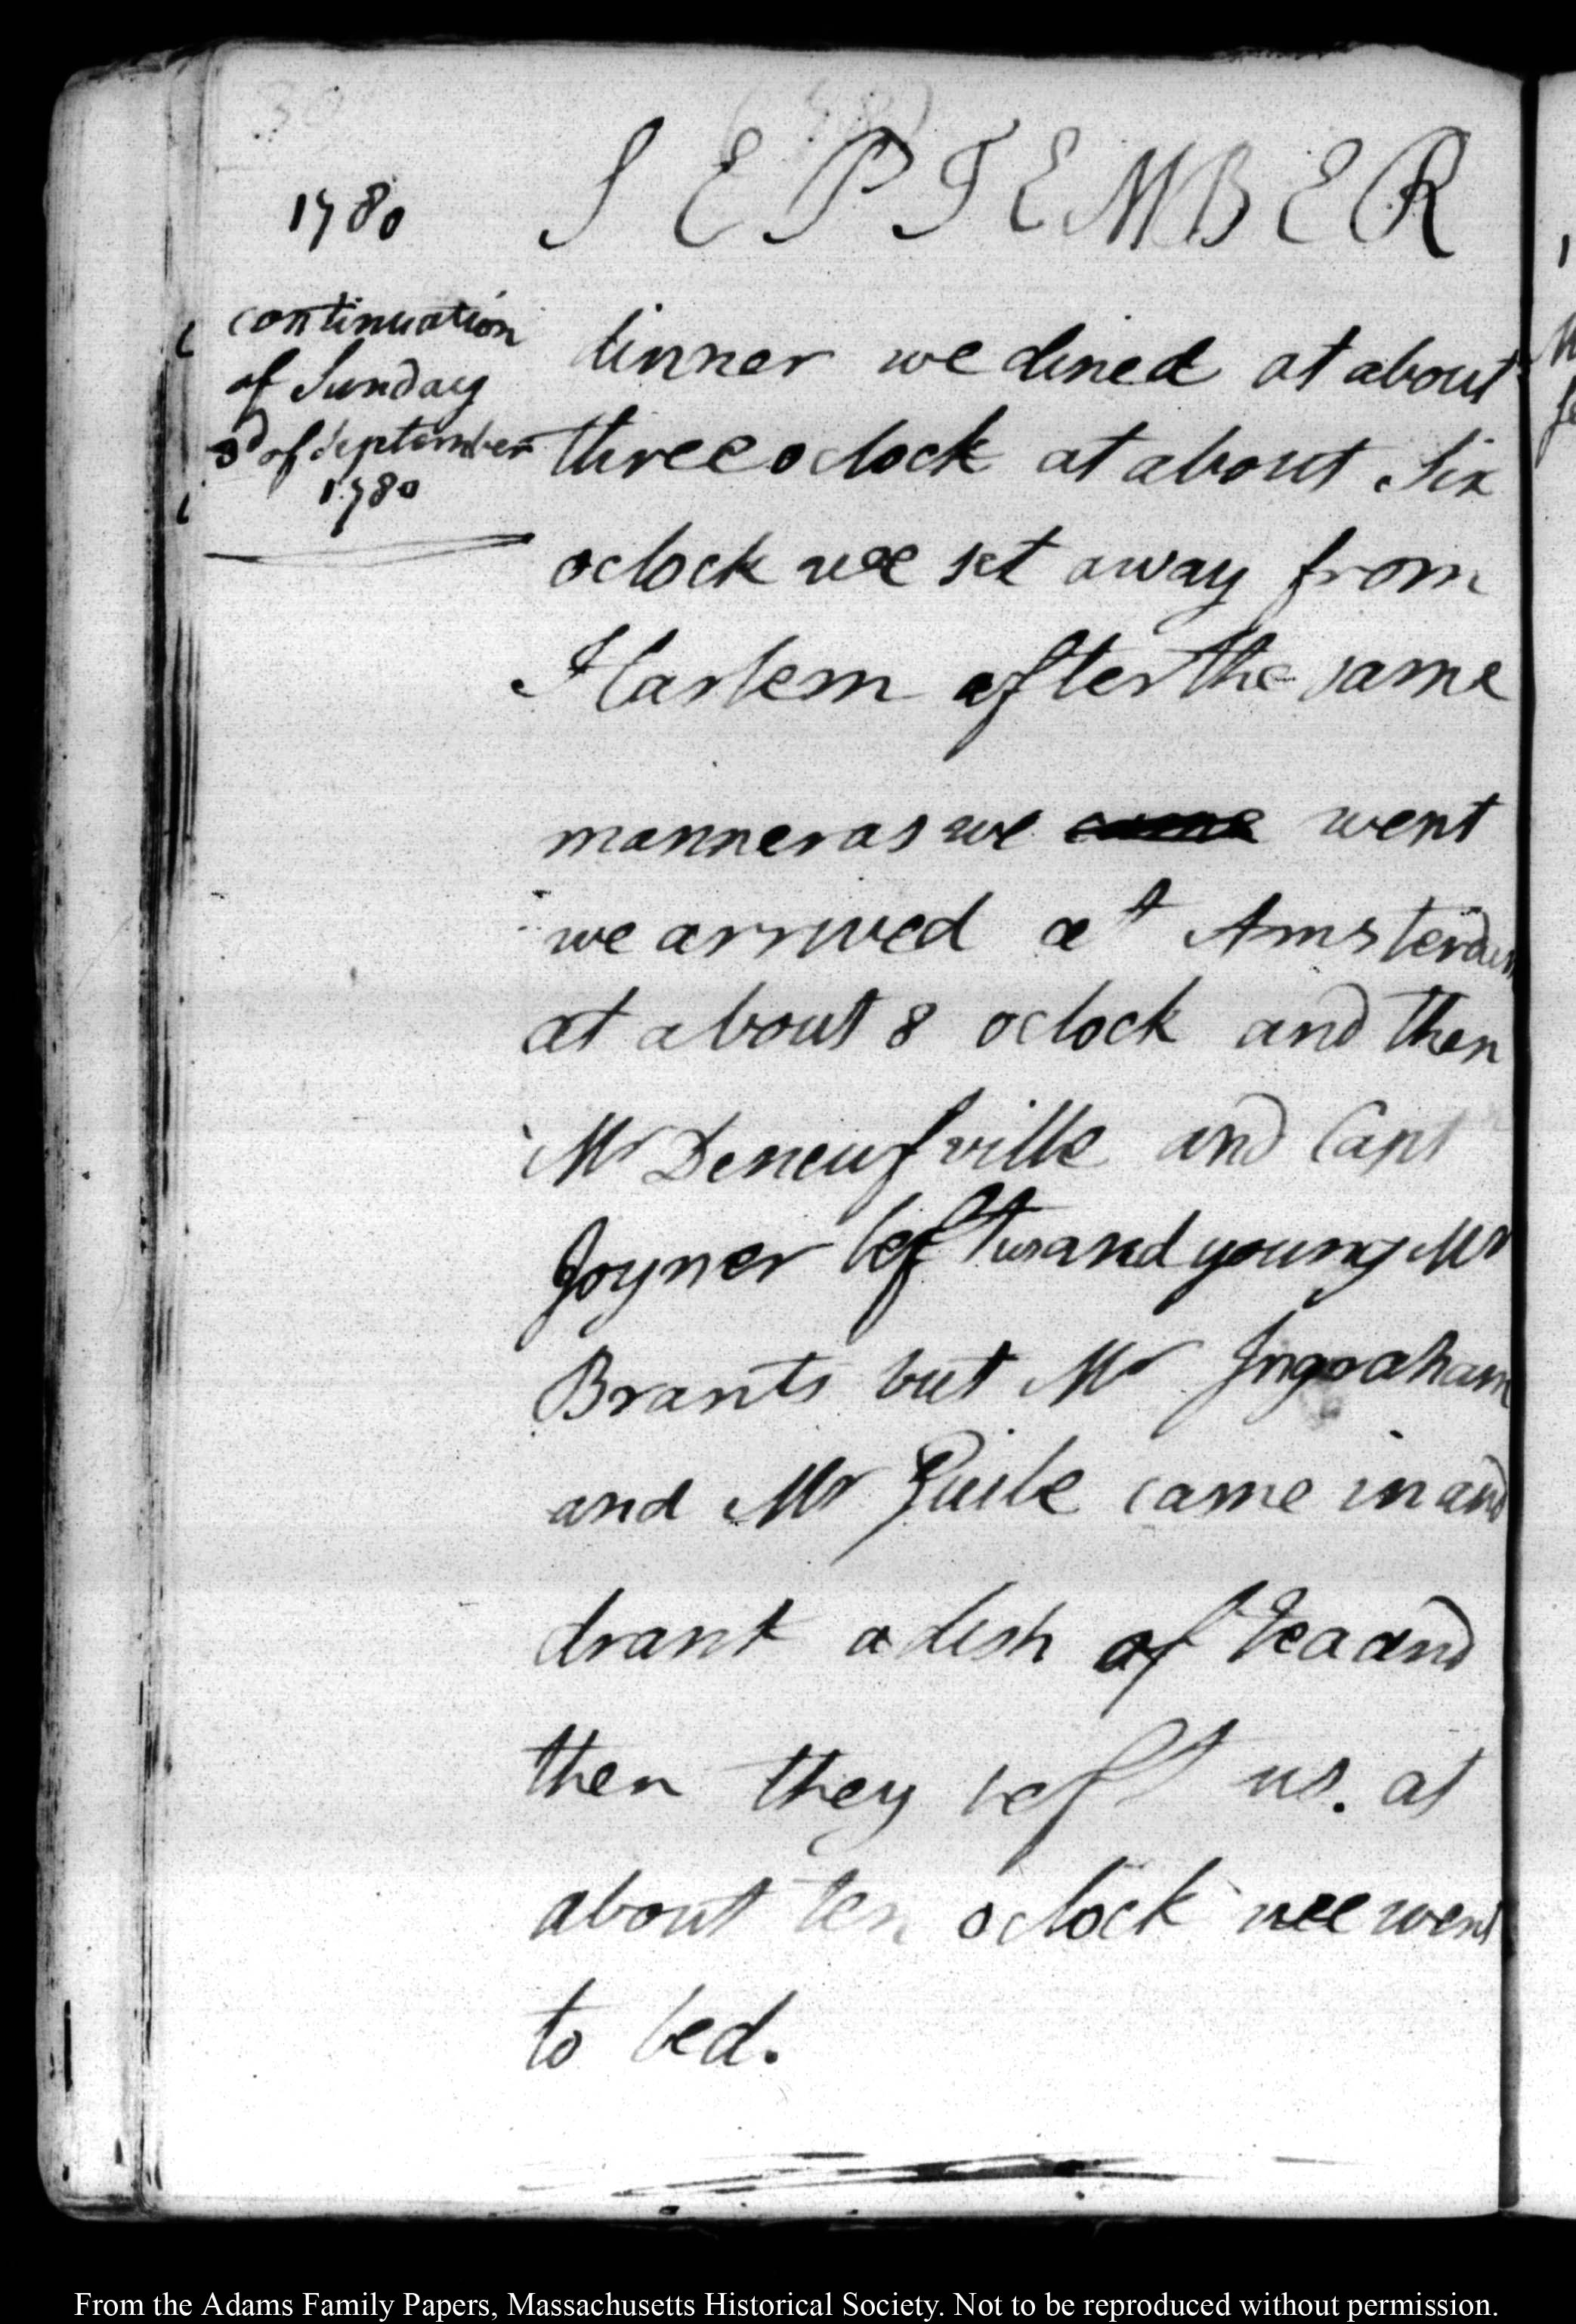 1780 SEPTEMBER
continuation
of Sunday
3d of September
1780
dinner we dined at about
three o clock at about Six
oclock wee set away from
Harlem after the same
manner as we came went
we arrived at Amsterdam
at about 8 oclock and then
Mr Deneufville and Capt
Joyner left us and young Mr
Brants but Mr Ingraham
and Mr Guile came in and
drank a dish of tea and
then they left us. at
about ten oclock wee went
to bed.
From the Adams Family Papers, Massachusetts Historical Society. Not to be reproduced without permission.